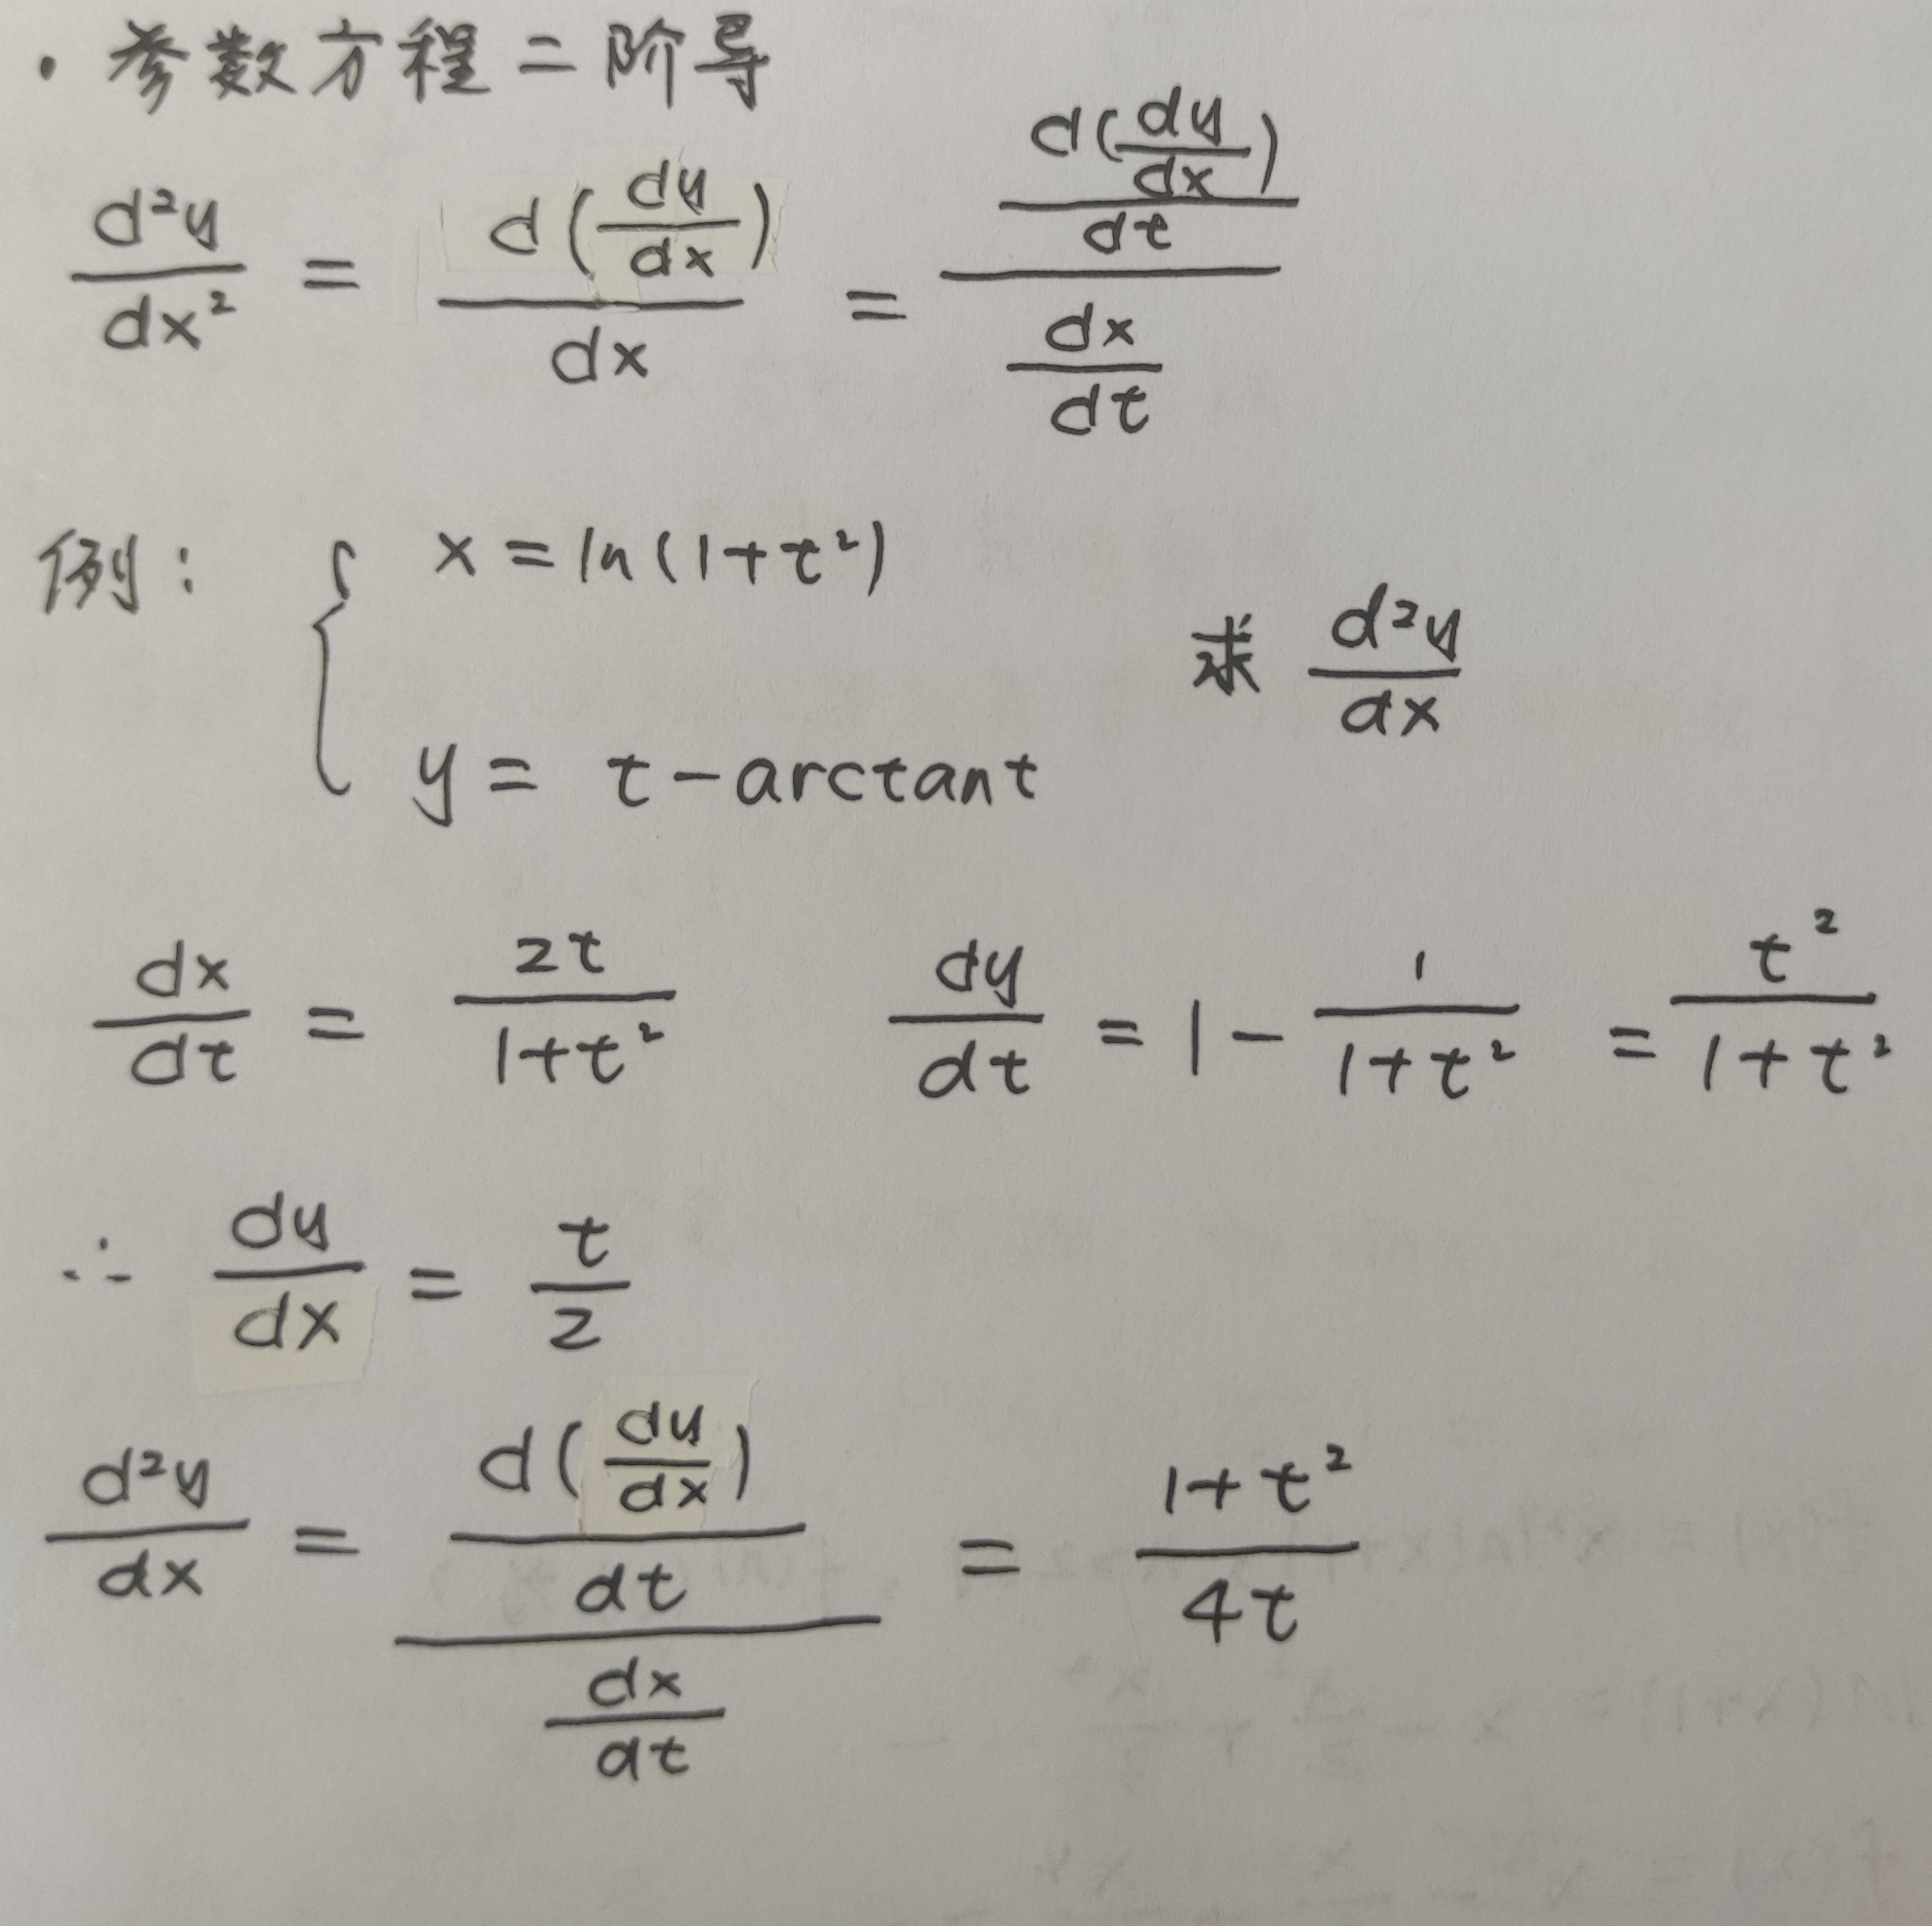 · 参数方程二阶导
d²y/dx² = d(dy/dx)/dx = (d(dy/dx)/dt)/(dx/dt)
例: { x = ln(1+t²)
y = t - arctant
求 d²y/dx
dx/dt = 2t/(1+t²) dy/dt = 1 - 1/(1+t²) = t²/(1+t²)
∴ dy/dx = t/2
d²y/dx = (d(dy/dx)/dt)/(dx/dt) = (1+t²)/(4t)